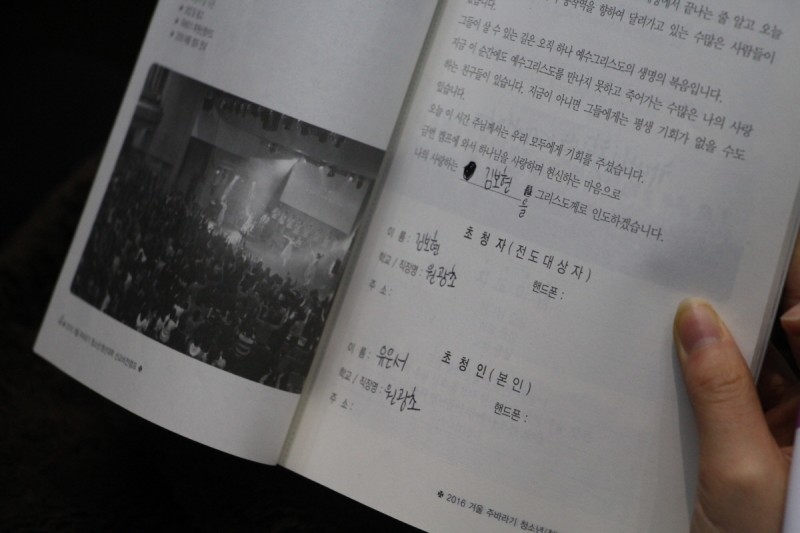 끝나는 줄 알고 오늘
향하여 달려가고 있는 수많은 사람들이
있습니다.
그들이 살 수 있는 길은 오직 하나 예수그리스도의 생명의 복음입니다.
지금 이 순간에도 예수그리스도를 만나지 못하고 죽어가는 수많은 나의 사랑
하는 친구들이 있습니다. 지금이 아니면 그들에게는 평생 기회가 없을 수도
있습니다.
오늘 이 시간 주님께서는 우리 모두에게 기회를 주셨습니다.
금번 캠프에 와서 하나님을 사랑하며 헌신하는 마음으로
나의 사랑하는 김보현 을 그리스도께로 인도하겠습니다.
초 청 자 ( 전 도 대 상 자 )
이 름 : 김보현
학교 / 직장명 : 원광초 핸드폰 :
주 소 :
초 청 인 ( 본 인 )
이 름 : 유은서
학교 / 직장명 : 원광초 핸드폰 :
주 소 :
2016 겨울 주바라기 청소년